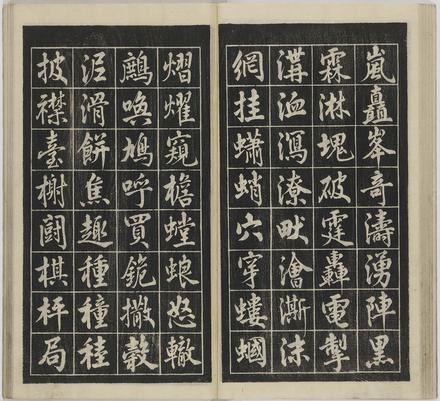 嵐矗峯奇濤湧陣黑
霖淋塊破霆轟電掣
溝洫瀉潦畎澮澌沫
網挂蠨蛸穴穿螻蟈
熠燿窺檐螳蜋怒轍
喚鳩呼買撒穀
泥滑餅焦趣種穜稑
披襟臺榭鬪棋枰局